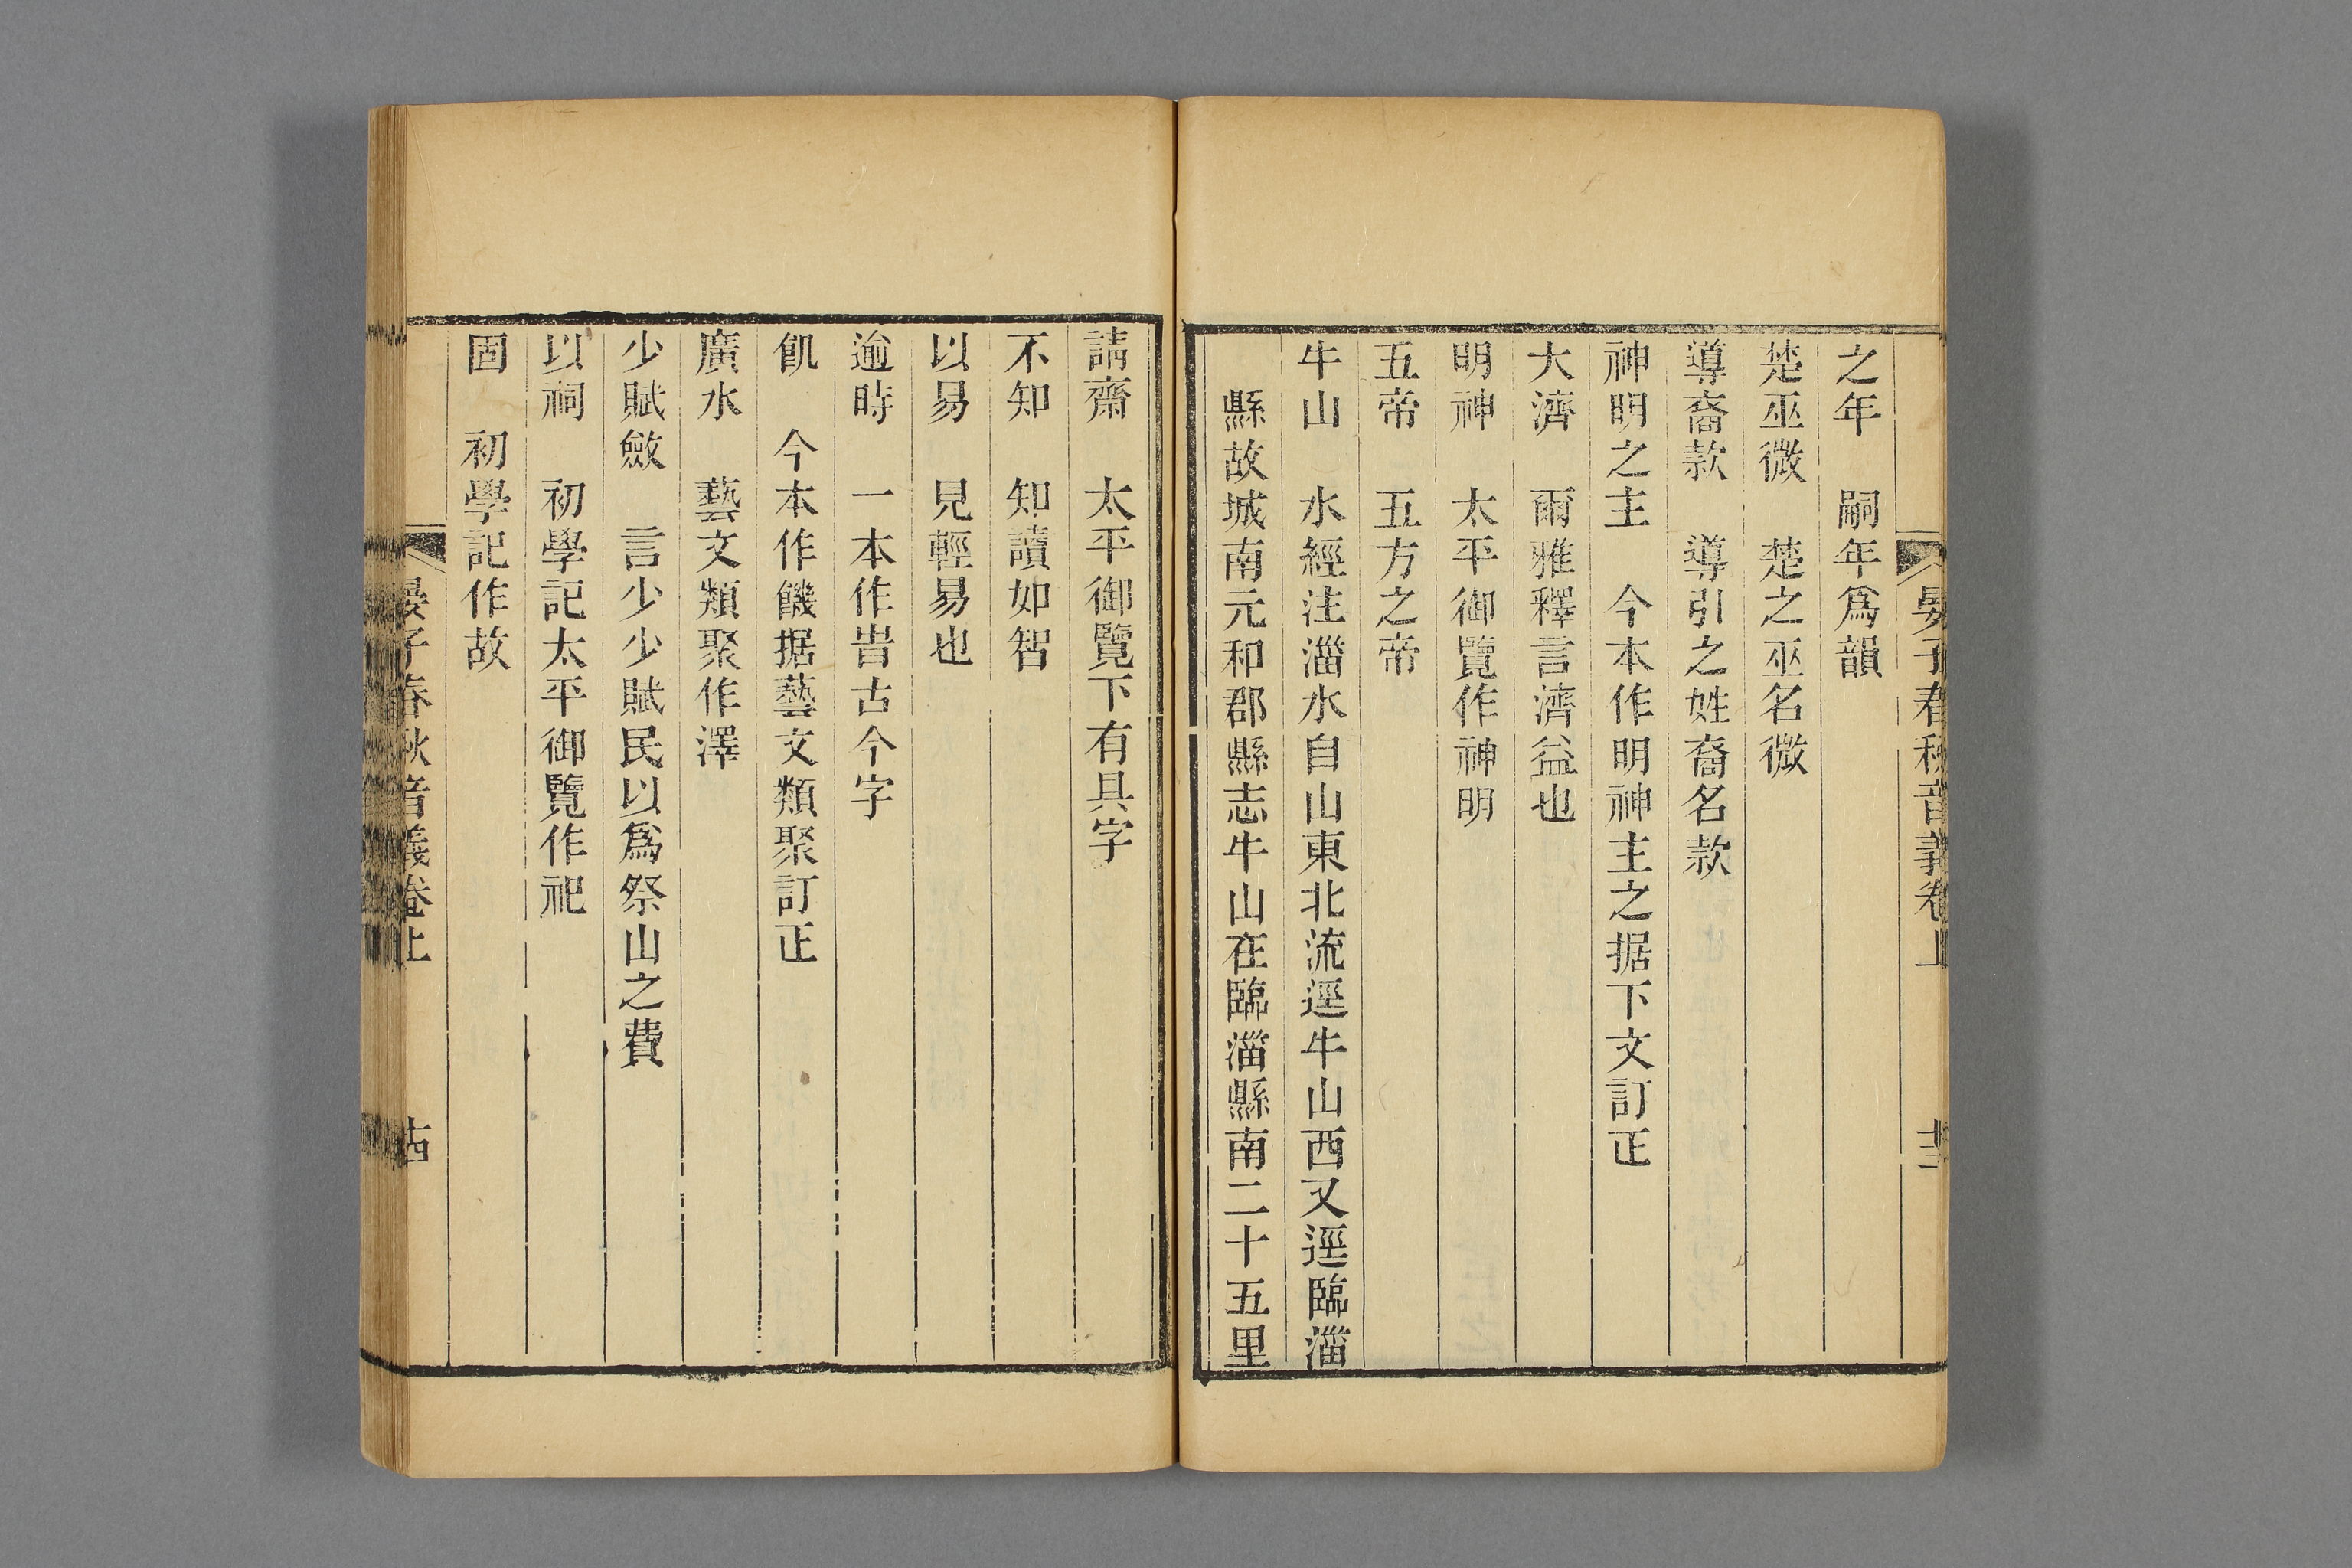 晏子春秋音義卷上
之年　嗣年爲韻
楚巫微　楚之巫名微
導裔款　導引之姓裔名款
神明之主　今本作明神主之据下文訂正
大濟　爾雅釋言濟益也
明神　太平御覽作神明
五帝　五方之帝
牛山　水經注淄水自山東北流逕牛山西又逕臨淄
縣故城南元和郡縣志牛山在臨淄縣南二十五里
請齋　太平御覽下有具字
不知　知讀如智
以易　見輕易也
逾時　一本作旹古今字
飢　今本作饑据藝文類聚訂正
廣水　藝文類聚作澤
少賦斂　言少少賦民以爲祭山之費
以祠　初學記太平御覽作祀
固　初學記作故
晏子春秋音義卷上